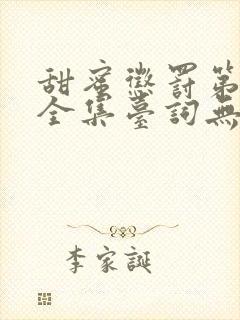 甜蜜懲罰第
全集臺詞無
李家誕